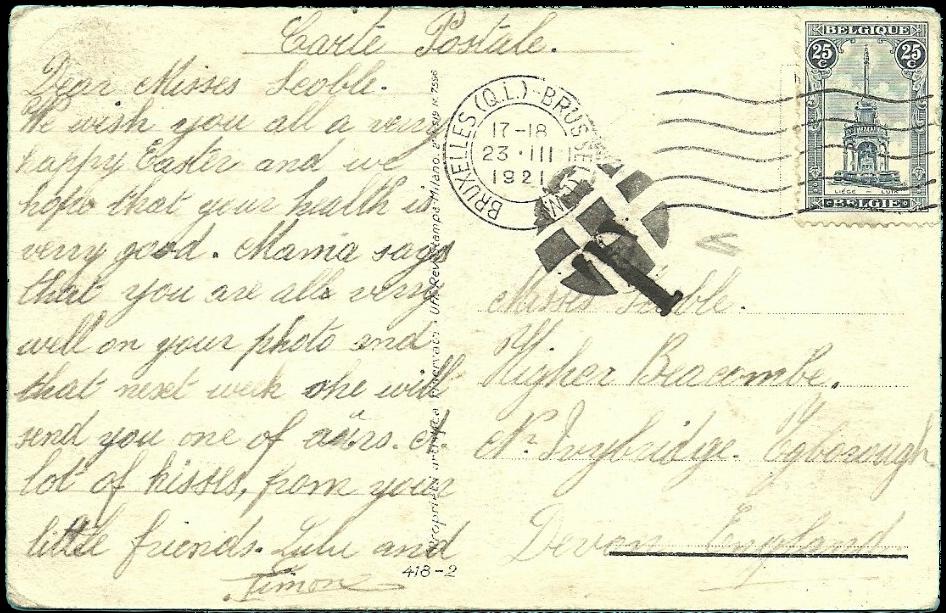 Carte Postale.
Dear Misses Scoble.
We wish you all a very
happy Easter and we
hope that your health is
very good. Mama says
that you are all very
well on your photo and
that next week she will
send you one of ours. A
lot of kisses, from your
little friends. Lulu and
Simon
418-2
BRUXELLES (Q.L.) - BRUSSEL
17-18
23 · III
1921
T
BELGIQUE
25 C 25 C
LIÉGE LUIK
BELGIË
Misses Scoble.
Higher Beacombe.
Nr Ivybridge. Egborough
Devon England